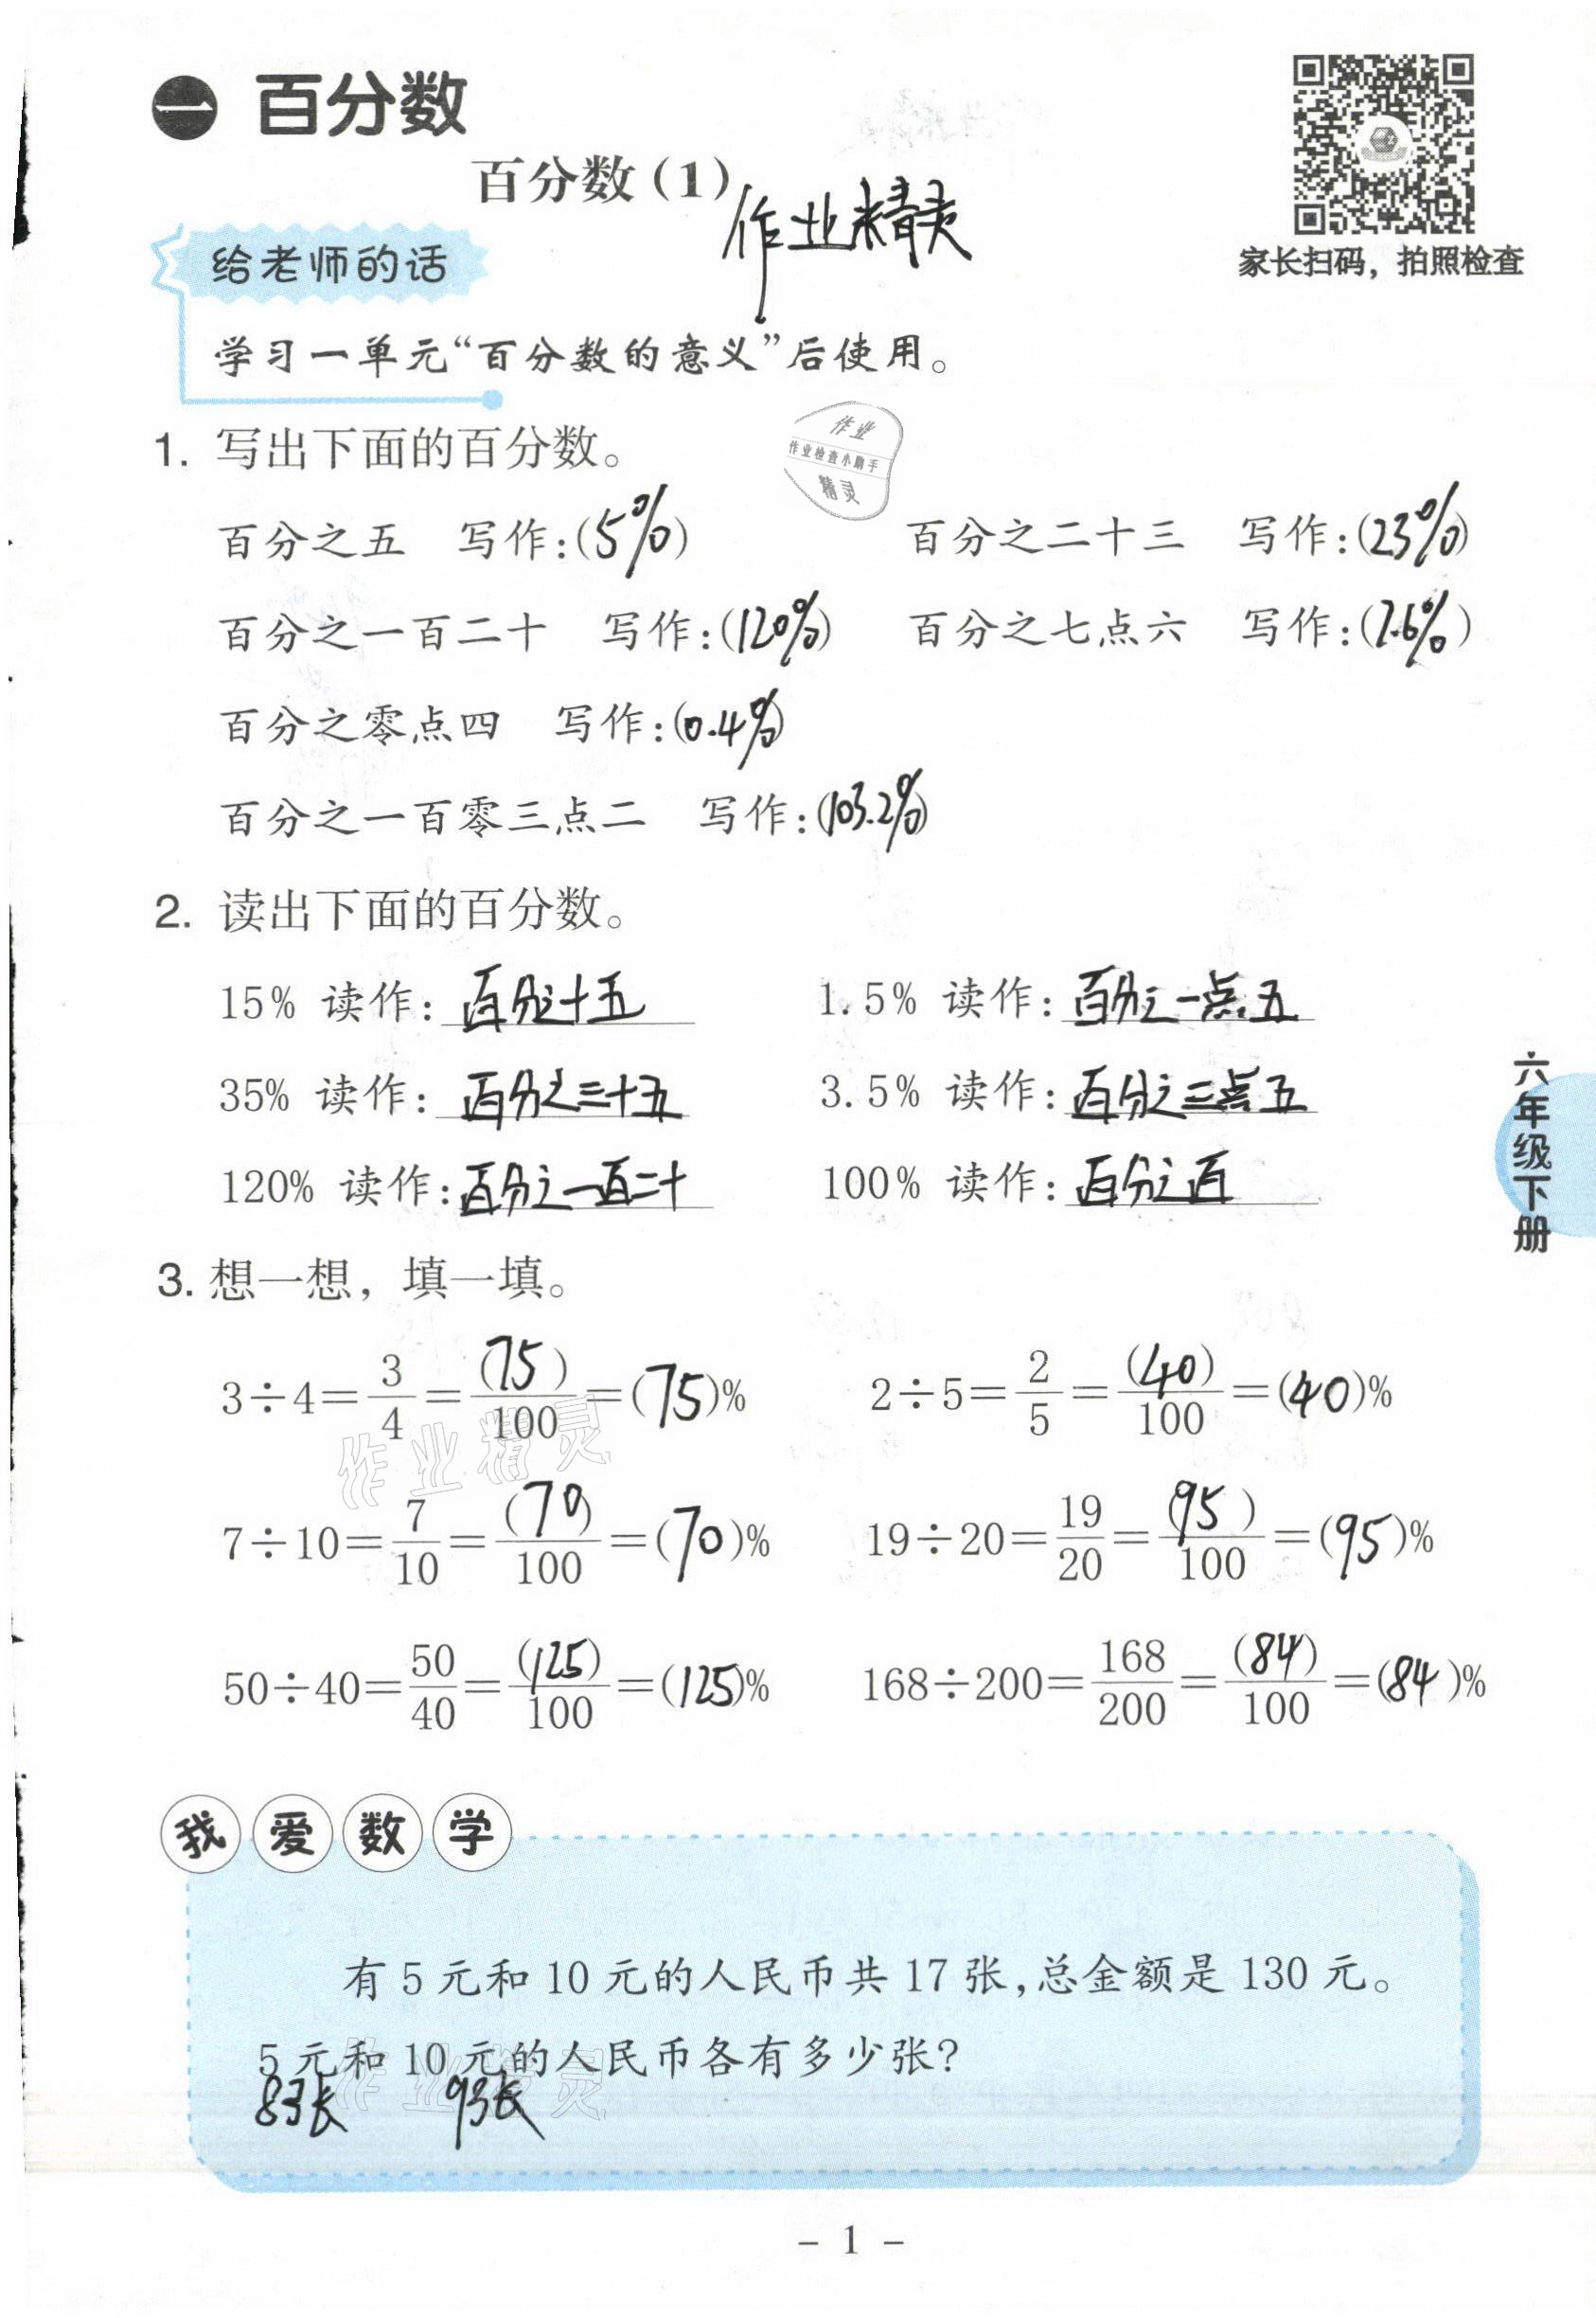 一 百分数
百分数(1)
作业精灵
家长扫码，拍照检查
给老师的话
学习一单元“百分数的意义”后使用。
作业
作业检查小助手
精灵
1. 写出下面的百分数。
百分之五 写作:(5%) 百分之二十三 写作:(23%)
百分之一百二十 写作:(120%) 百分之七点六 写作:(7.6%)
百分之零点四 写作:(0.4%)
百分之一百零三点二 写作:(103.2%)
2. 读出下面的百分数。
15% 读作: 百分之十五 1.5% 读作: 百分之一点五
35% 读作: 百分之三十五 3.5% 读作: 百分之三点五
120% 读作: 百分之一百二十 100% 读作: 百分之百
六年级下册
3. 想一想，填一填。
3÷4=3/4=(75)/100=(75)% 2÷5=2/5=(40)/100=(40)%
作业精灵
7÷10=7/10=(70)/100=(70)% 19÷20=19/20=(95)/100=(95)%
50÷40=50/40=(125)/100=(125)% 168÷200=168/200=(84)/100=(84)%
我爱数学
有5元和10元的人民币共17张,总金额是130元。
5元和10元的人民币各有多少张?
作业精灵
8张 9张
- 1 -